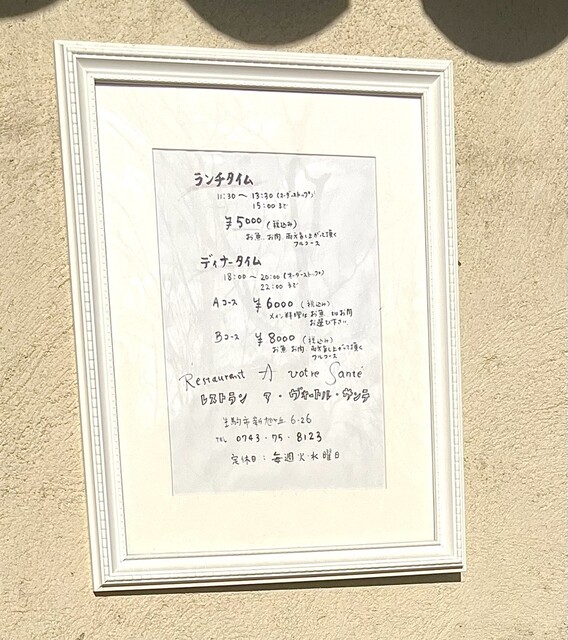 ランチタイム
11:30～13:30 (オーダーストップ)
15:00まで
¥5000 (税込み)
お魚、お肉、両方召し上がって頂く
フルコース
ディナータイム
18:00～20:00 (オーダーストップ)
22:00まで
Aコース ¥6000 (税込み)
メイン料理は お魚 お肉
お選び下さい
Bコース ¥8000 (税込み)
お魚 お肉 両方召し上がって頂く
フルコース
Restaurant A votre Santé
レストラン ア・ヴォートル・サンテ
生駒市新旭ヶ丘 6-26
TEL 0743・75・8123
定休日：毎週火・水曜日